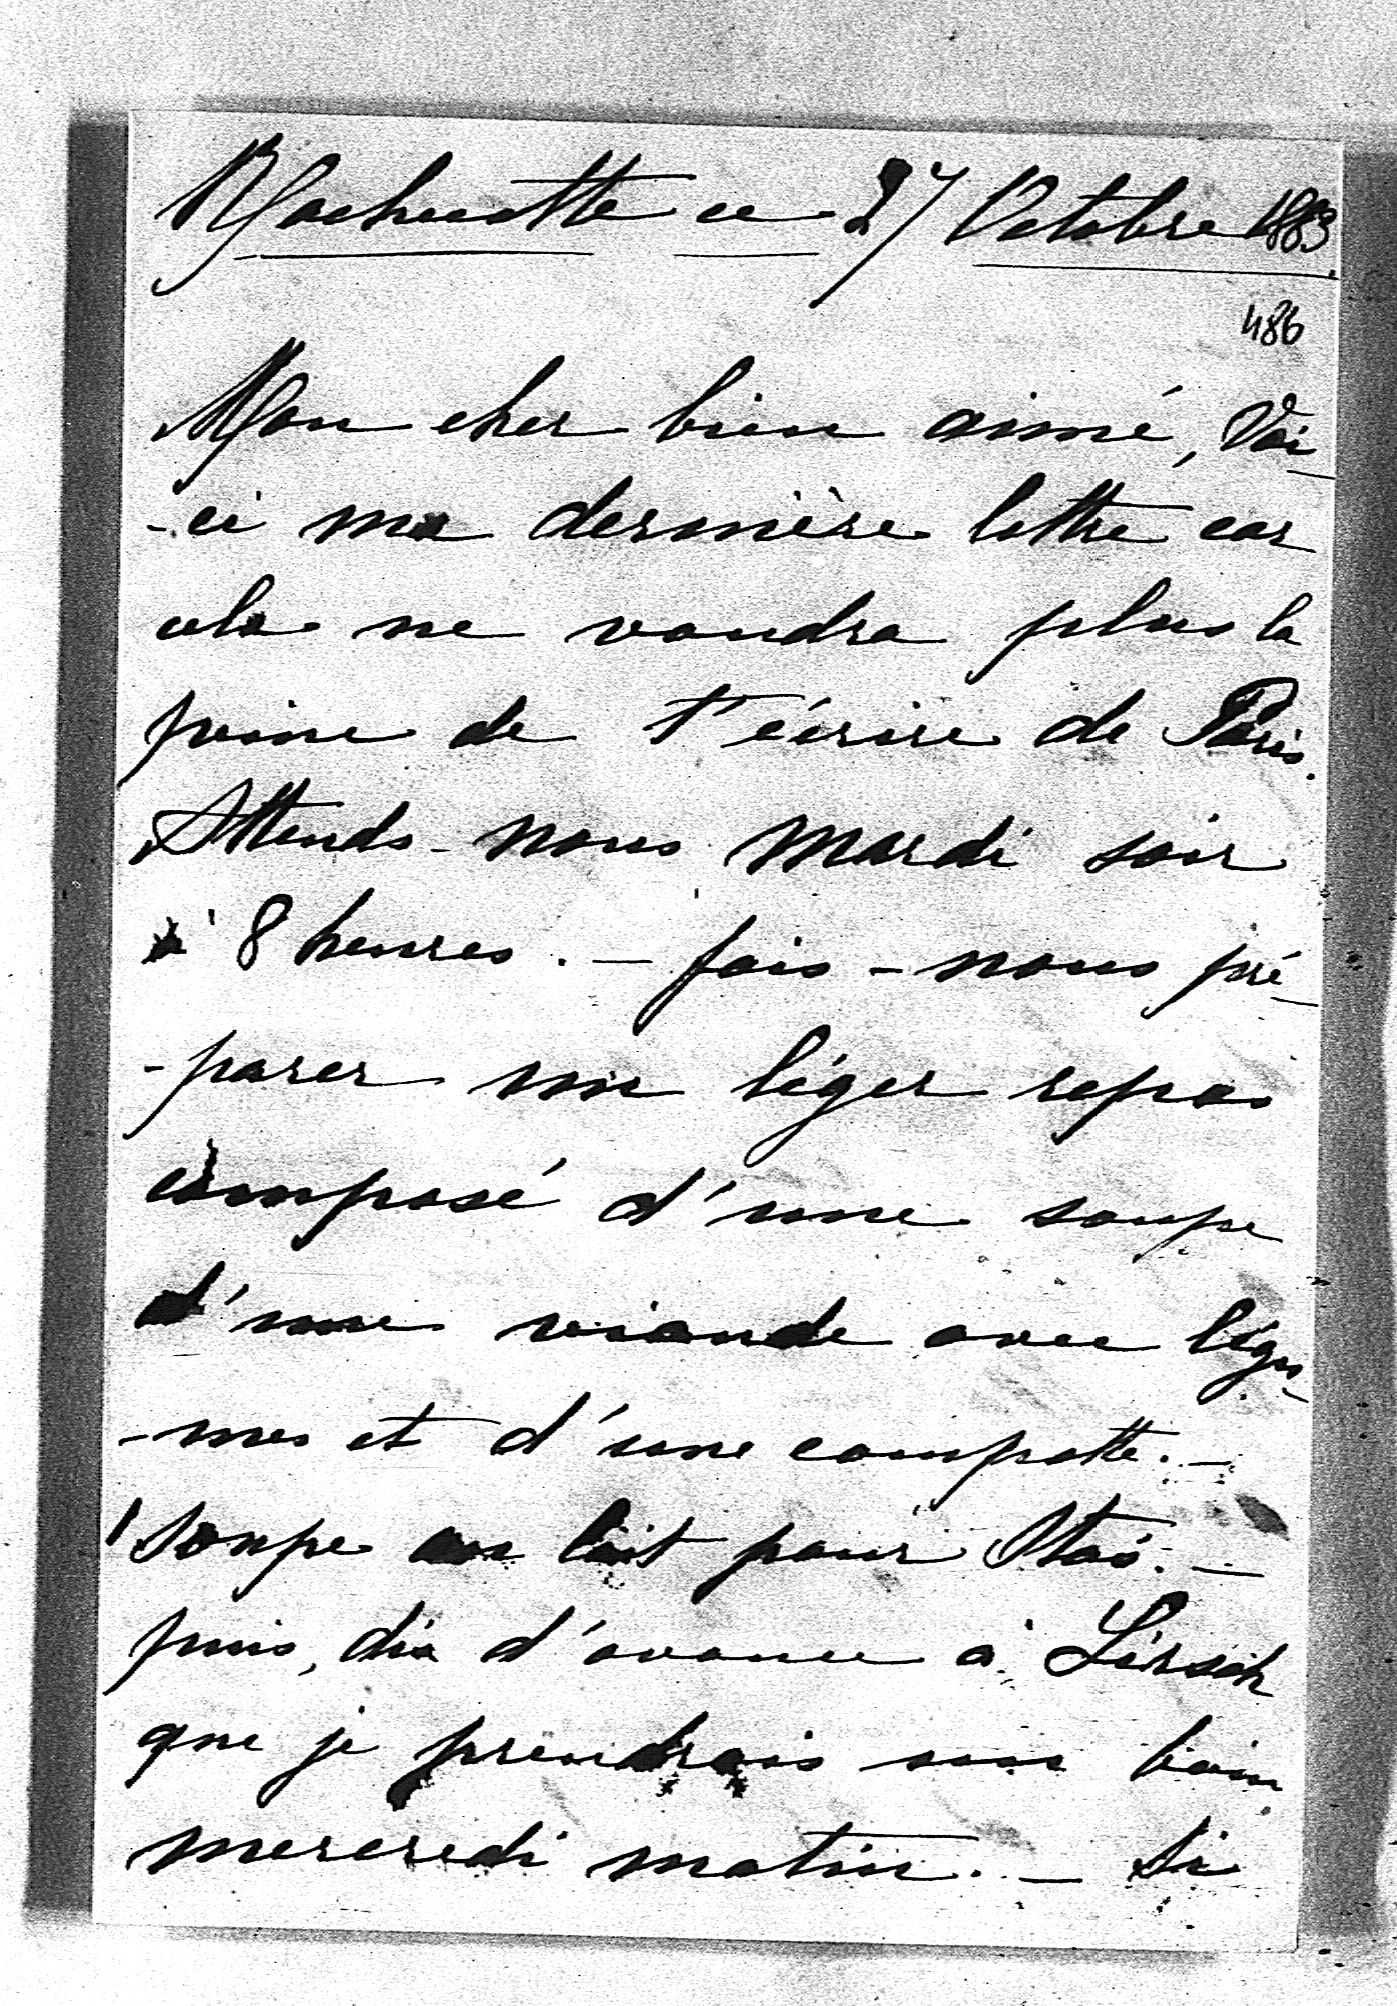 Rochecotte ce 27 Octobre 1883.
486
Mon cher bien aimé, Voi-
-ci ma dernière lettre car
cela ne vaudra plus la
peine de t'écrire de Paris.
Attends-nous Mardi soir
à 8 heures. — fais-nous pré-
-parer un léger repas
composé d'une soupe
d'une viande avec légu-
-mes et d'une compotte. —
soupe au lait pour Stas. —
puis, dis d'avance à Lirsch
que je prendrais un bain
mercredi matin. — Si